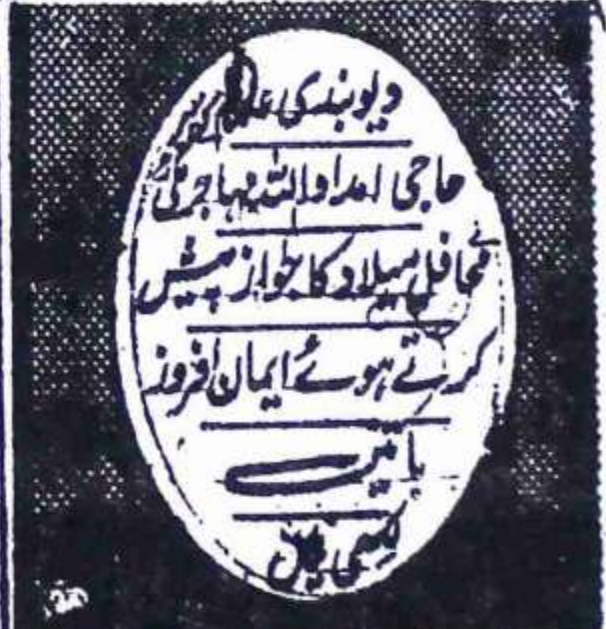 دیوبندی علماء کے پیر
حاجی امداد اللہ مہاجر مکیؒ
محافل میلاد کا جواز پیش
کرتے ہوئے ایمان افروز
باتیں
لکھی ہیں